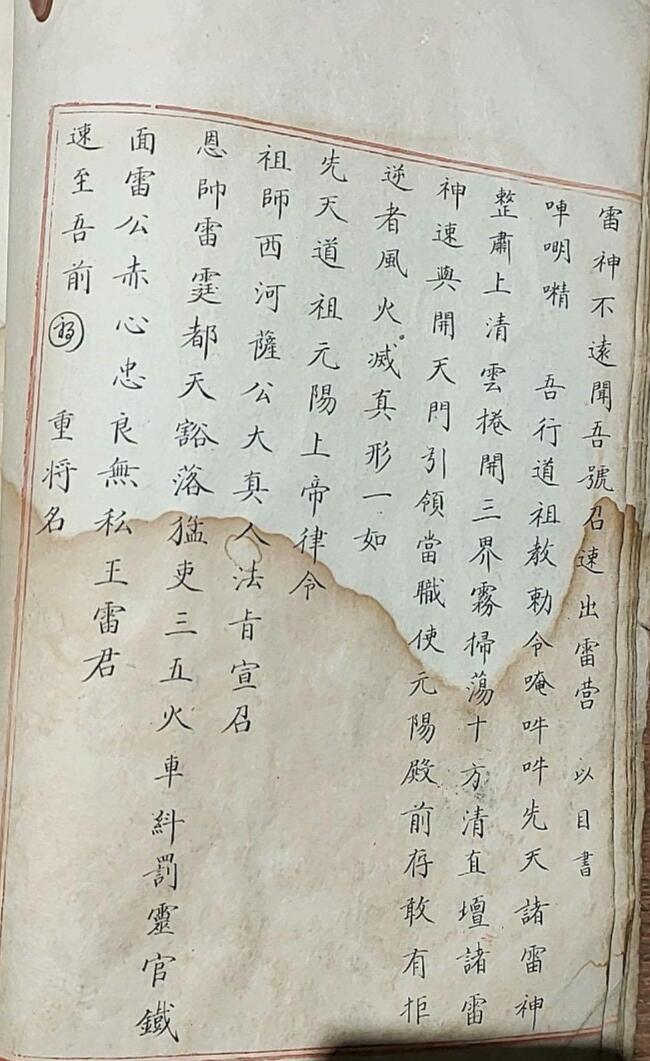 雷神不遠聞吾號召速出雷營 以目書
唓㫤㬢 吾行道祖教勅令唵吽吽先天諸雷神
整肅上清雲捲開三界霧掃蕩十方清直壇諸雷
神速與開天門引領當職使元陽殿前存敢有拒
逆者風火滅真形一如
先天道祖元陽上帝律令
祖師西河薩公大真人法旨宣召
恩帥雷霆都天豁落猛吏三五火車糾罰靈官鐵
面雷公赤心忠良無私王雷君
速至吾前 重将名